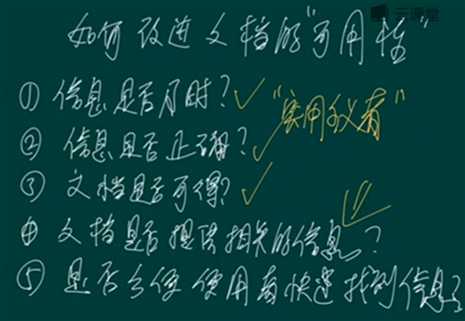 云课堂
如何改进文档的"可用性"
① 信息是否及时? ✓
② 信息是否正确? ✓ "实用主义者"
③ 文档是否可得? ✓
④ 文档是否提供相关的信息?
⑤ 是否方便使用者快速找到信息?